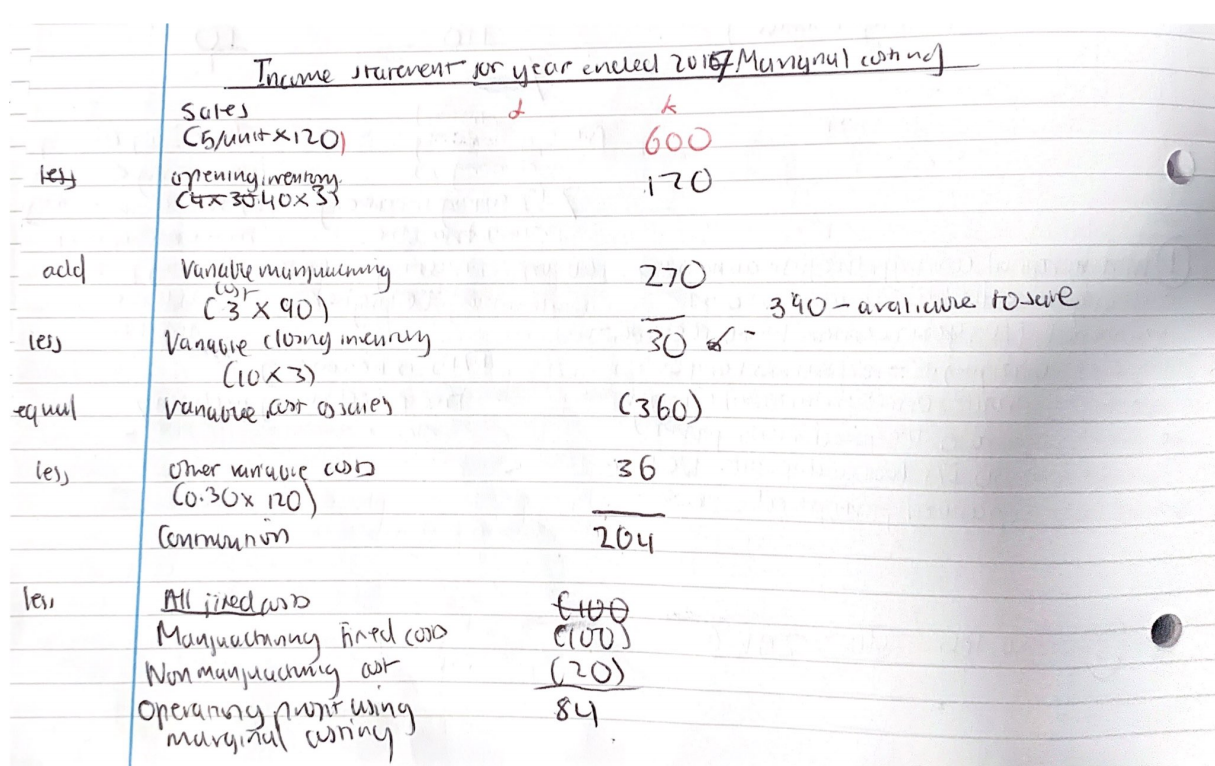 Income statement for year ended 2017 Marginal costing
£ k
Sales 600
(5/unit × 120)
less opening inventory 120
(4 × 30 40 × 3)
add Variable manufacturing 270
cost
(3 × 90)
390 - available to sale
less Variable closing inventory 30
(10 × 3)
equal Variable cost of sales (360)
less other variable costs 36
(0.30 × 120)
Contribution 204
less All fixed costs (100
Manufacturing fixed costs (100)
Non manufacturing cost (20)
Operating profit using 84
marginal costing